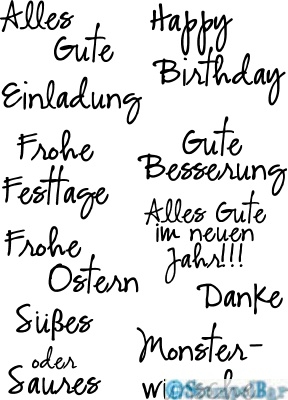 Alles
Gute
Happy
Birthday
Einladung
Frohe
Festtage
Gute
Besserung
Alles Gute
im neuen
Jahr!!!
Frohe
Ostern
Danke
Süßes
oder
Saures
Monster-